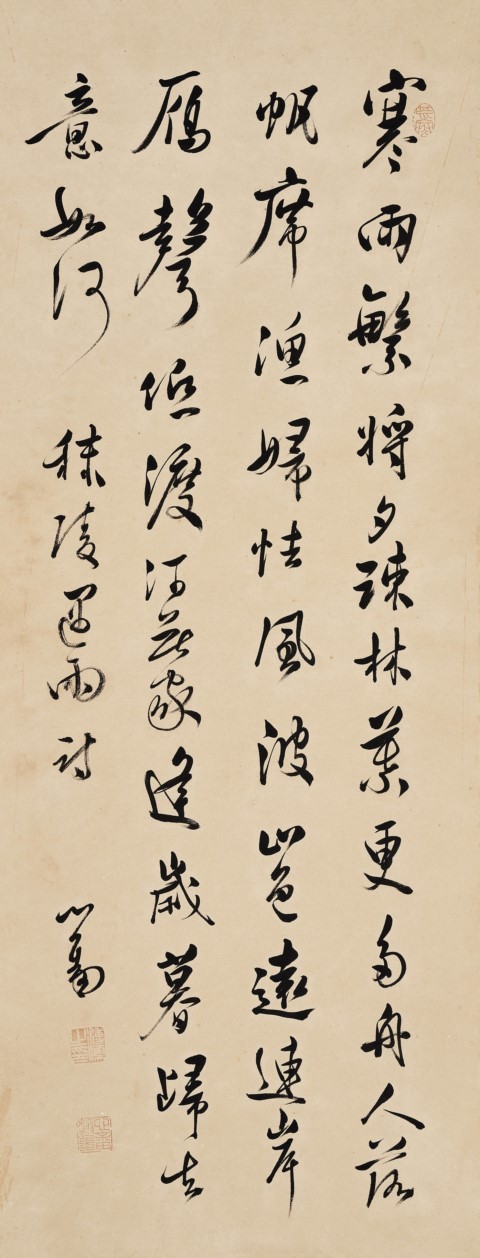 寒雨繁將夕疎林葉更多舟人落
帆席漁婦怯風波山色遠連岸
雁聲低渡河無家逢歲暮歸去
意如何 秣陵遇雨詩 心畬